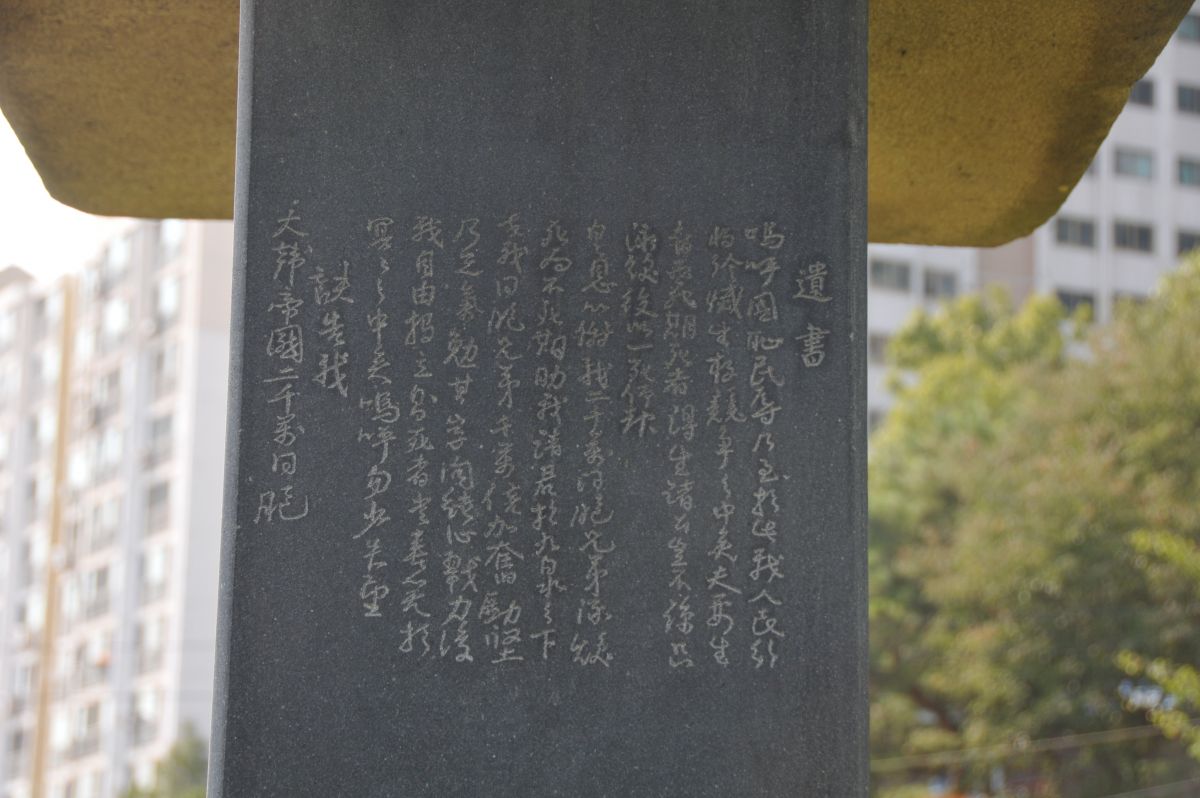 遺書
嗚呼國恥民辱乃至於此我人民行
將殄滅生存競爭之中矣夫要生
者必死期死者得生諸公豈不諒只
泳煥徒以一死仰報
皇恩以謝我二千萬同胞兄弟泳煥
死而不死期助我諸君於九泉之下
幸我同胞兄弟千萬倍加奮勵堅
乃志氣勉其学問結心戮力復
我自由獨立則死者當喜笑於
冥々之中矣嗚呼勿少失望
訣告我
大韓帝國二千萬同胞